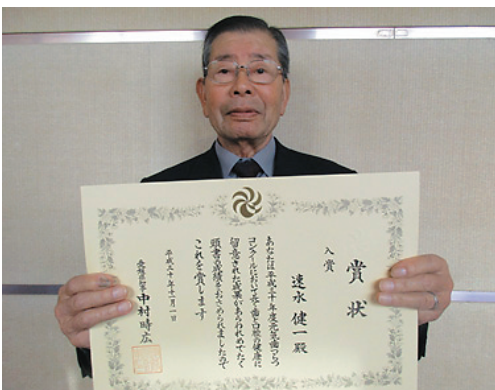 賞状
入賞
速水健一殿
あなたは平成三十年度元気歯つらつ
コンクールにおいてよく歯と口腔の健康に
留意された成果であらわれめでたく
頭書の成績をおさめられましたので
これを賞します
平成三十年十一月一日
愛媛県知事 中村時広